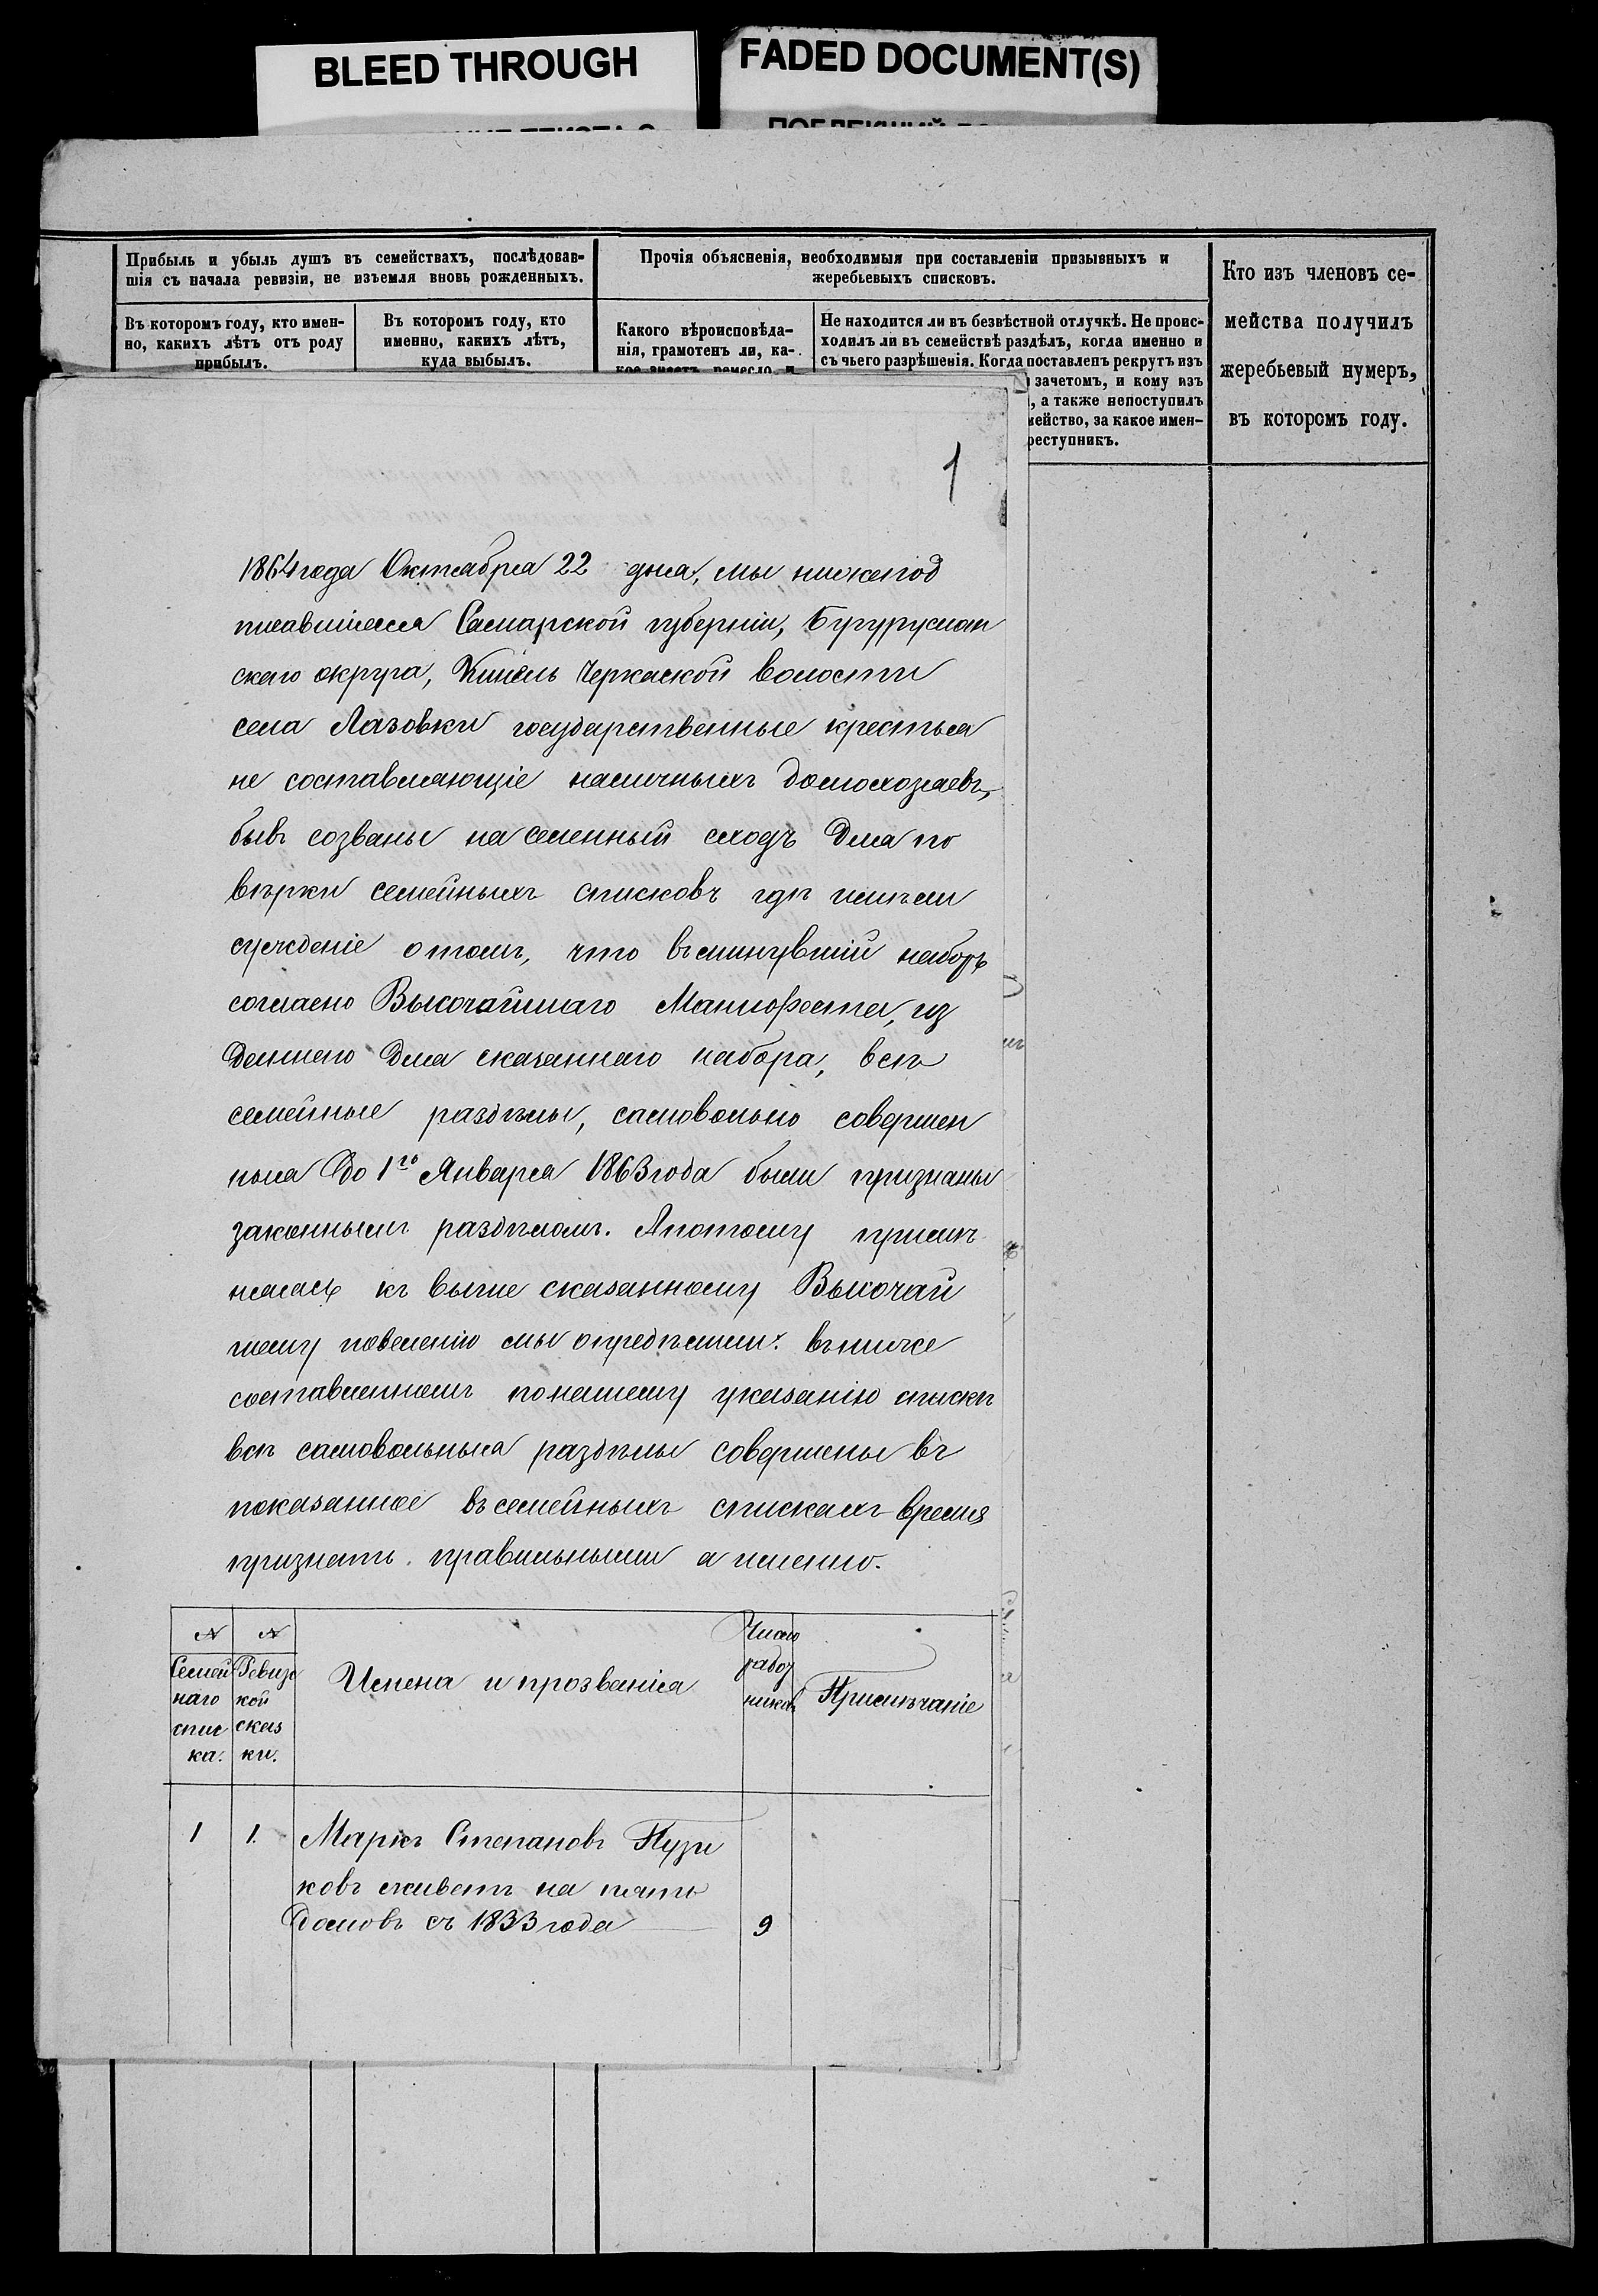 BLEED THROUGH
FADED DOCUMENT(S)
Прибыль и убыль душъ въ семействахъ, послѣдовав-
шія съ начала ревизіи, не изъемля вновь рожденныхъ.
Въ которомъ году, кто имен-
но, какихъ лѣтъ отъ роду
прибылъ.
Въ которомъ году, кто
именно, какихъ лѣтъ,
куда выбылъ.
Прочія объясненія, необходимыя при составленіи призывныхъ и
жеребьевыхъ списковъ.
Какого вѣроисповѣда-
нія, грамотенъ ли, ка-
кое знаетъ ремесло и
Не находится ли въ безвѣстной отлучкѣ. Не проис-
ходилъ ли въ семействѣ раздѣлъ, когда именно и
съ чьего разрѣшенія. Когда поставленъ рекрутъ изъ
зачетомъ, и кому изъ
, а также непоступилъ
мейство, за какое имен-
реступникъ.
Кто изъ членовъ се-
мейства получилъ
жеребьевый нумеръ,
въ которомъ году.
1
1864 года Октября 22 дня, мы нижепод
писавшіеся Самарской губерніи, Бугуруслан
скаго округа, Кинель Черкаской волости
села Лазовки государственные крестья
не составляющіе наличныхъ домохозяевъ,
бывъ созваны на селенный сходъ для по
вѣрки семейныхъ списковъ гдѣ имѣли
сужденіе отомъ, что въминувшій наборъ
согласно Высочайшаго Манифеста, из
деннаго для сказаннаго набора, всѣ
семейные раздѣлы, самовольно совершен
ныя до 1го Января 1863 года были признаны
законнымъ раздѣломъ. Апотому примѣ
няясь къ выше сказанному Высочай
шему повелению мы опредѣлили: въниже
составленномъ понашему указанію спискѣ
всѣ самовольныя раздѣлы совершены въ
показанное въсемейныхъ спискахъ время
признать правильными а именно.
№
Семей
наго
спис
ка.
№
Ревизс
кой
сказ
ки.
Имена и прозванія
Число
работ
никовъ
Примѣчаніе
1 1. Маркъ Степановъ Пузи
ковъ живетъ на пять
домовъ съ 1833 года 9